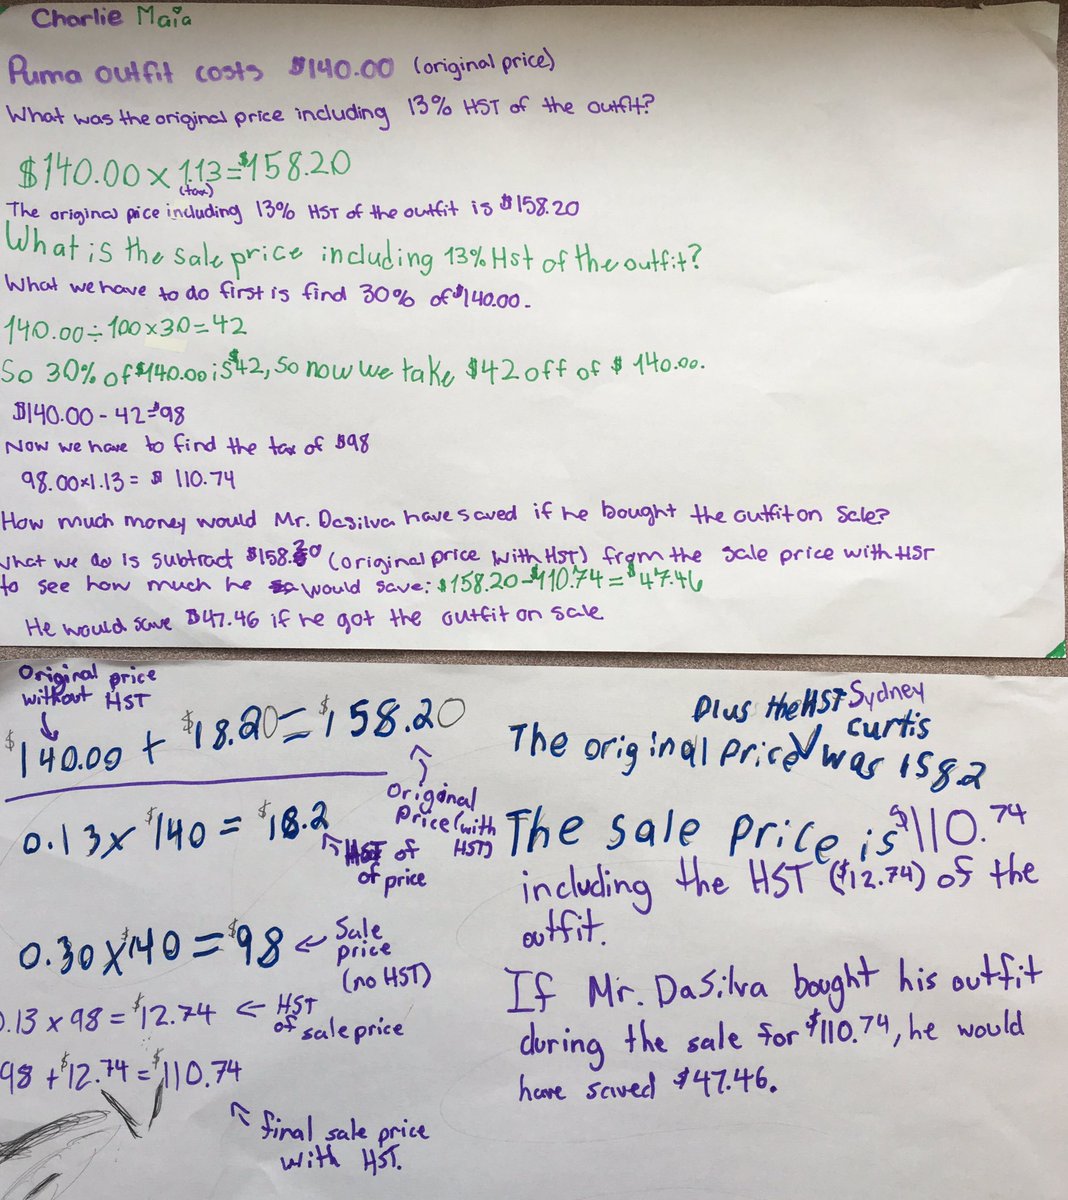 Charlie Maia
Puma outfit costs $140.00 (original price)
What was the original price including 13% HST of the outfit?
$140.00 x 1.13 = $158.20
(tax)
The original pice including 13% HST of the outfit is $158.20
What is the sale price including 13% Hst of the outfit?
What we have to do first is find 30% of $140.00.
140.00 ÷ 100 x 30 = 42
So 30% of $140.00 is $42, So now we take $42 off of $ 140.00.
$140.00 - 42 = $98
Now we have to find the tax of $98
98.00 x 1.13 = $ 110.74
How much money would Mr. Dasilva have saved if he bought the outfit on Sale?
What we do is subtract $158.20 (original price with HST) from the sale price with HST
to see how much he would save: $158.20 - $110.74 = $47.46
He would save $47.46 if he got the outfit on sale
Original price
without HST
$140.00 + $18.20 = $158.20
Original
Price (with
HST)
0.13 x $140 = $18.2
HST of
of price
0.30 x $140 = $98 ← Sale
price
(no HST)
0.13 x 98 = $12.74 ← HST
of sale price
98 + $12.74 = $110.74
final sale price
with HST.
Sydney
curtis
Plus the HST
The original price was 158.2
The sale price is $110.74
including the HST ($12.74) of the
outfit.
If Mr. DaSilva bought his outfit
during the sale for $110.74, he would
have saved $47.46.